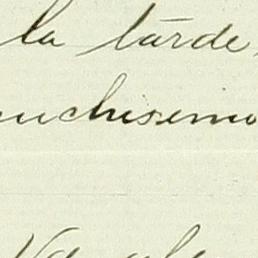 la tarde,
uchisimo